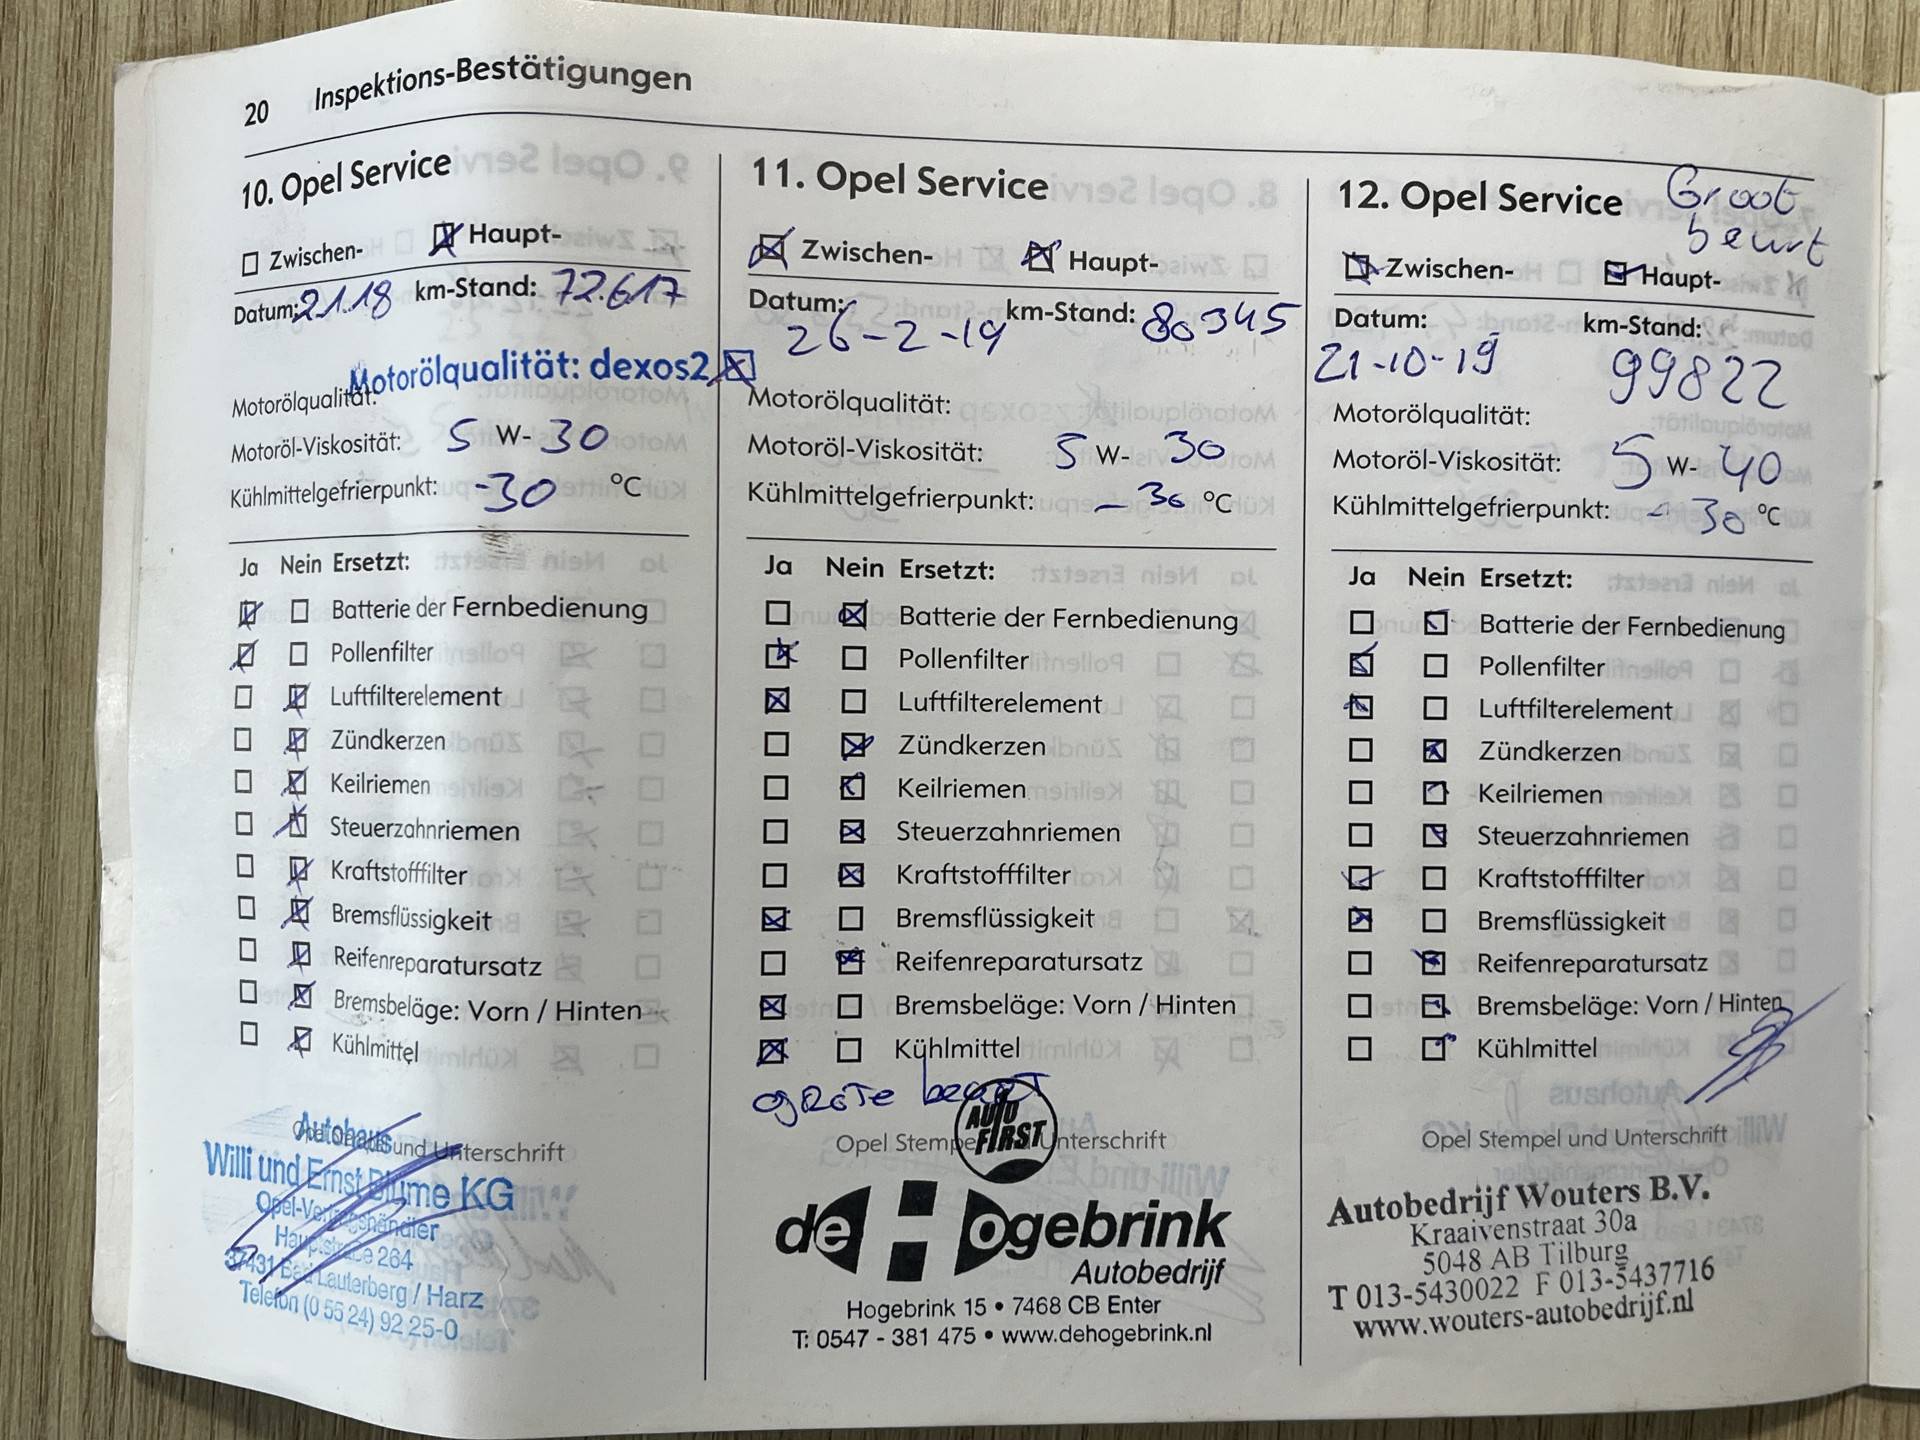 20 Inspektions-Bestätigungen
10. Opel Service
Zwischen- Haupt-
Datum: 2.1.18 km-Stand: 72.617
Motorölqualität: dexos2
Motorölqualität:
Motoröl-Viskosität: 5 W- 30
Kühlmittelgefrierpunkt: -30 °C
Ja Nein Ersetzt:
Batterie der Fernbedienung
Pollenfilter
Luftfilterelement
Zündkerzen
Keilriemen
Steuerzahnriemen
Kraftstofffilter
Bremsflüssigkeit
Reifenreparatursatz
Bremsbeläge: Vorn / Hinten
Kühlmittel
Opel Stempel und Unterschrift
Autohaus
Willi und Ernst Blume KG
Opel-Vertragshändler
Hauptstraße 264
37431 Bad Lauterberg / Harz
Telefon (0 55 24) 92 25-0
11. Opel Service
Zwischen- Haupt-
Datum: km-Stand: 80345
26-2-19
Motorölqualität:
Motoröl-Viskosität: 5 W- 30
Kühlmittelgefrierpunkt: - 30 °C
Ja Nein Ersetzt:
Batterie der Fernbedienung
Pollenfilter
Luftfilterelement
Zündkerzen
Keilriemen
Steuerzahnriemen
Kraftstofffilter
Bremsflüssigkeit
Reifenreparatursatz
Bremsbeläge: Vorn / Hinten
Kühlmittel
grote beurt
AUTO
FIRST
Opel Stempel und Unterschrift
de Hogebrink
Autobedrijf
Hogebrink 15 • 7468 CB Enter
T: 0547 - 381 475 • www.dehogebrink.nl
12. Opel Service
Groot
beurt
Zwischen- Haupt-
Datum: km-Stand:
21-10-19 99822
Motorölqualität:
Motoröl-Viskosität: 5 W- 40
Kühlmittelgefrierpunkt: - 30 °C
Ja Nein Ersetzt:
Batterie der Fernbedienung
Pollenfilter
Luftfilterelement
Zündkerzen
Keilriemen
Steuerzahnriemen
Kraftstofffilter
Bremsflüssigkeit
Reifenreparatursatz
Bremsbeläge: Vorn / Hinten
Kühlmittel
Opel Stempel und Unterschrift
Autobedrijf Wouters B.V.
Kraaivenstraat 30a
5048 AB Tilburg
T 013-5430022 F 013-5437716
www.wouters-autobedrijf.nl